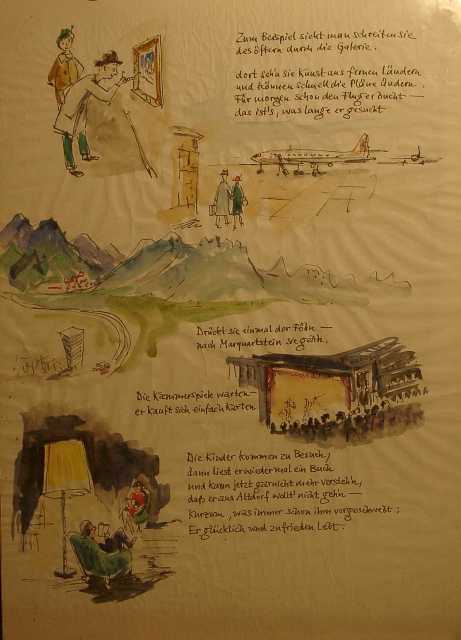 Zum Beispiel sieht man schreiten sie
des öftern durch die Galerie.
dort sehn sie Kunst aus fernen Ländern
und können schnell die Pläne ändern.
Für morgen schon den Flug er bucht —
das ist's, was lange er gesucht
Drückt sie einmal der Föhn —
nach Marquartstein sie gehn.
Die Kammerspiele warten —
er kauft sich einfach Karten
Die Kinder kommen zu Besuch,
dann liest er wieder mal ein Buch
und kann jetzt garnicht mehr verstehn,
daß er aus Altdorf wollt' nicht gehn —
Kurzum, was immer schon ihm vorgeschwebt:
Er glücklich und zufrieden lebt.